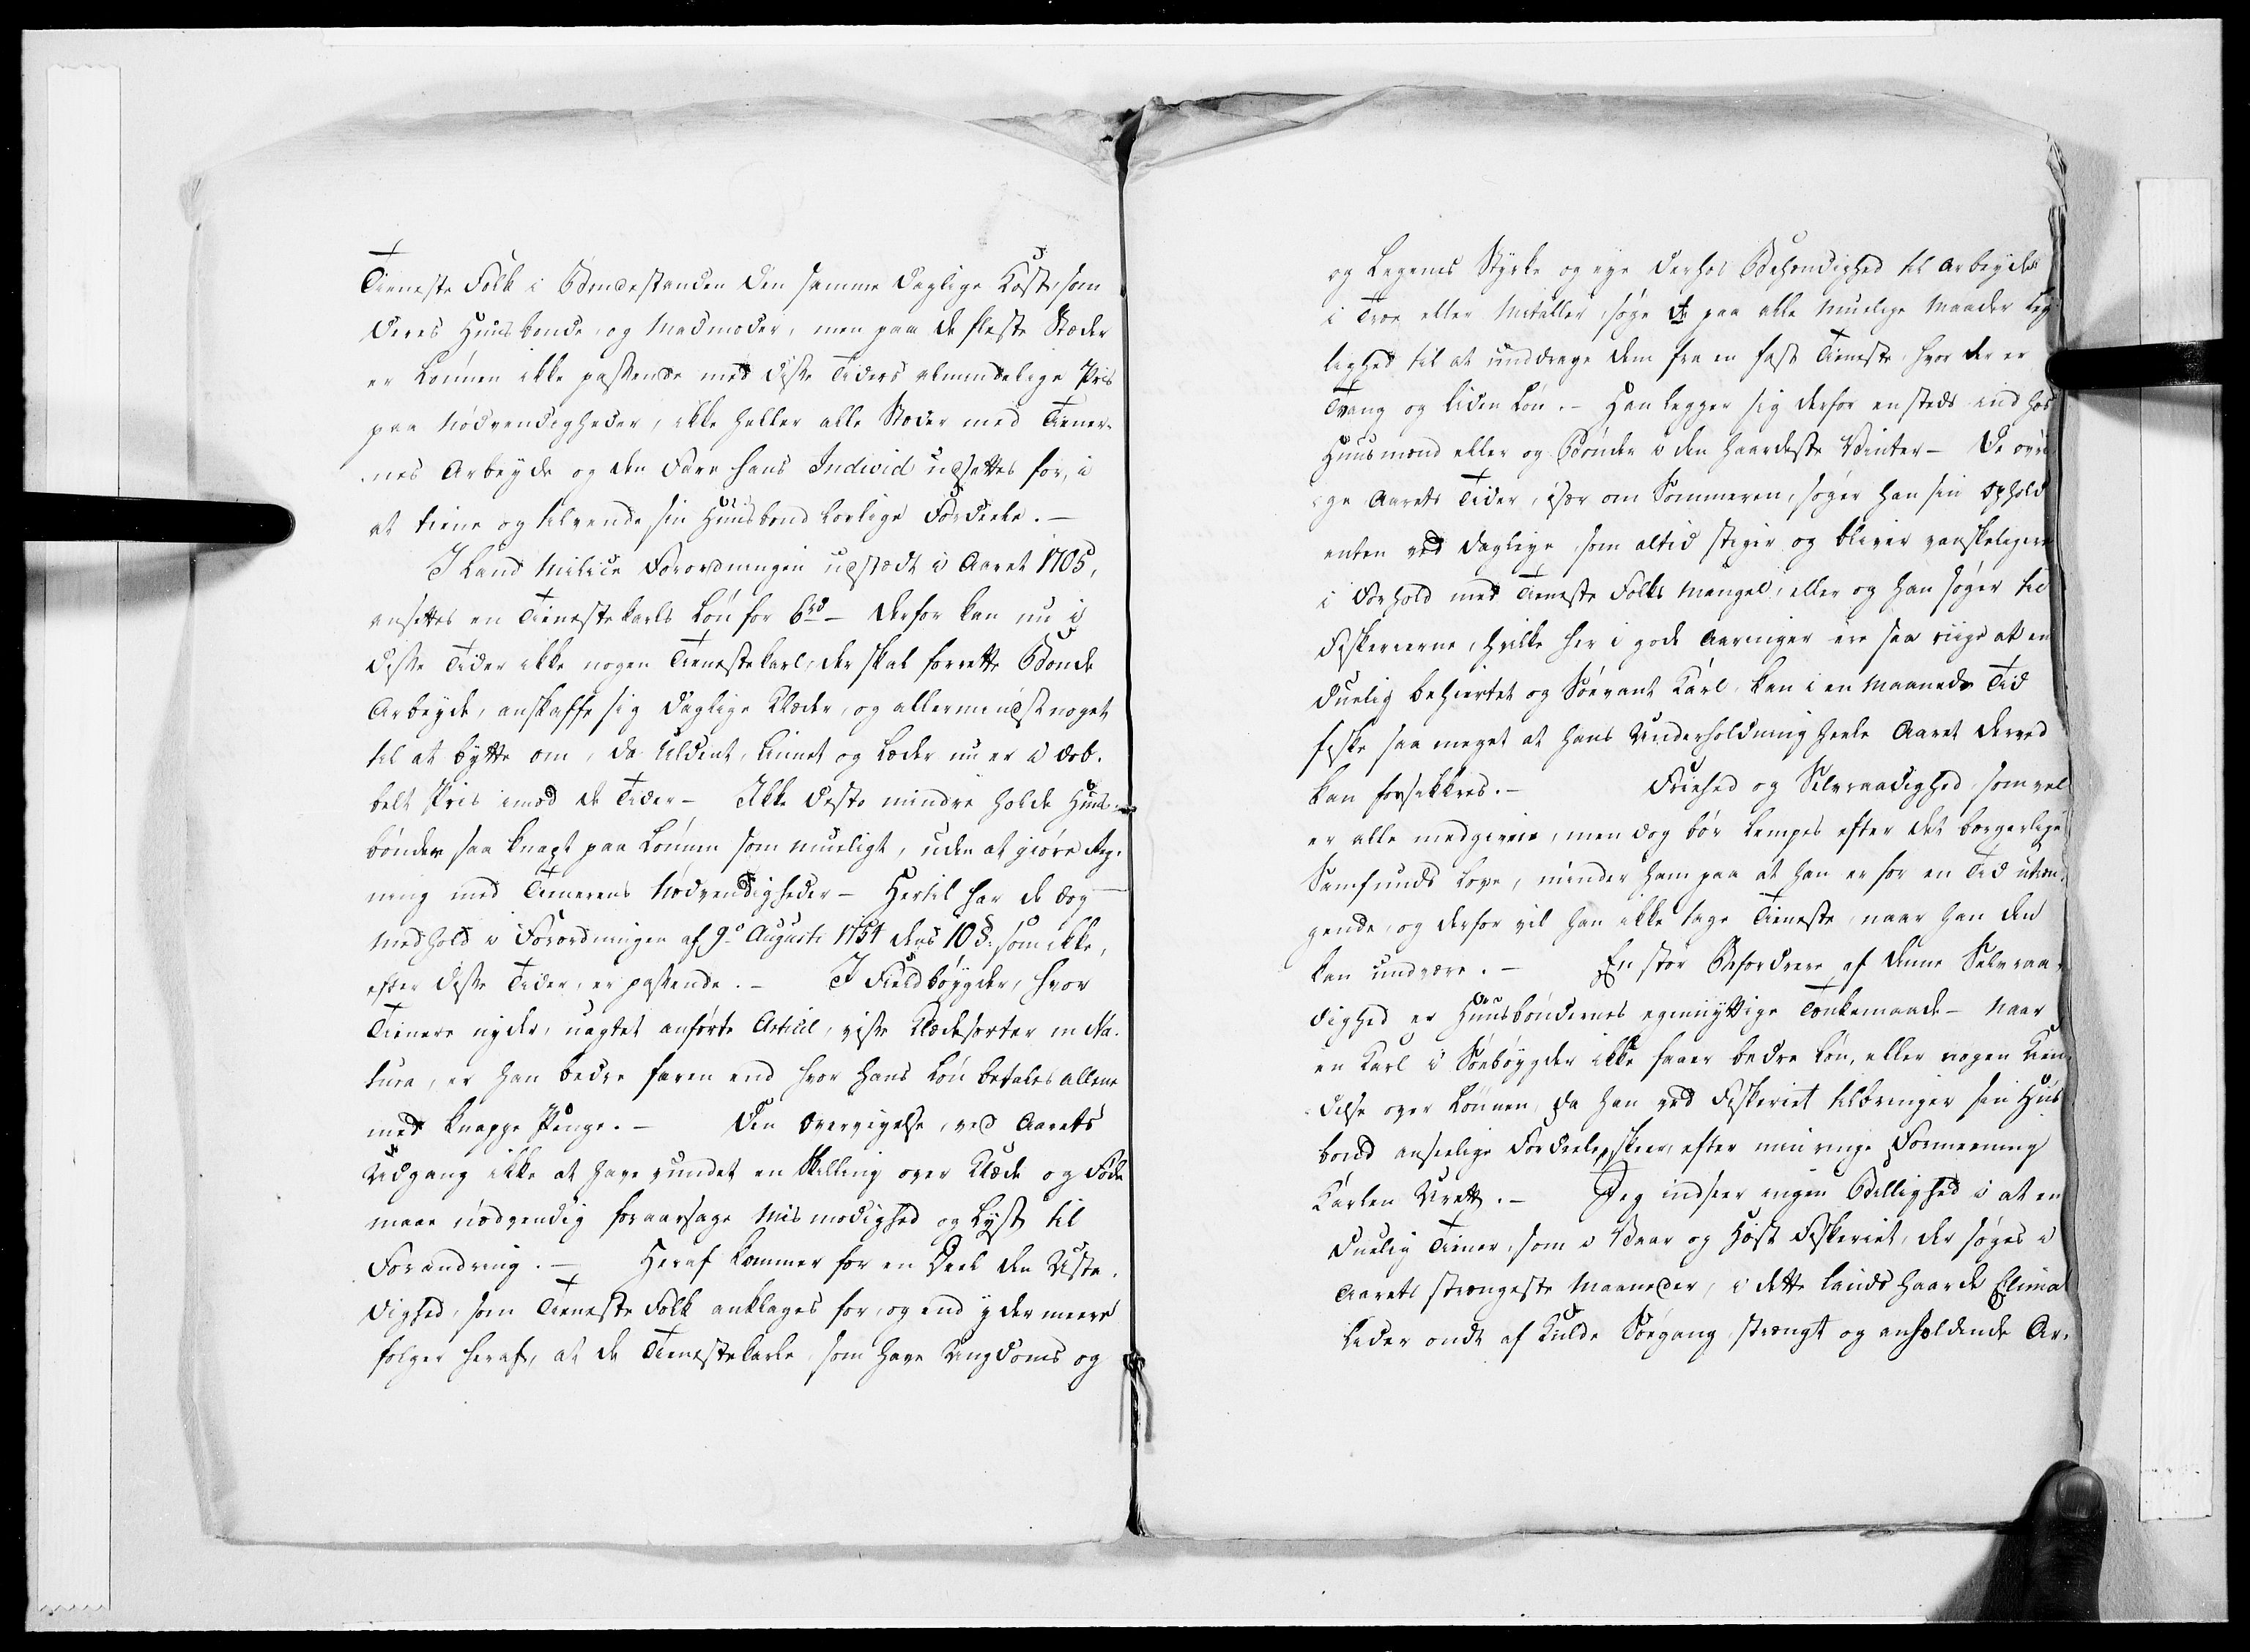 Tieneste Folk i Bondestanden den samme daglige Kost, som
deres Huusbonde og Madmoder, men paa de fleste Stæder
er Lønnen ikke passende med disse Tiders almindelige Pris
paa Nødvendigheder, ikke heller alle Stæder med Tiener-
nes Arbeyde og den Fare hans Individ udsættes for, i
at tiene og tilvende sin Huusbond lovlige Fordeele. -
I Land Milice Forordningen udstædt i Aaret 1705,
ansettes en Tienestekarls Løn for 6 rd - derfor kan nu i
disse Tider ikke nogen Tienestekarl, der skal forrette Bonde
Arbeyde, anskaffe sig daglige Klæder, og allermindst noget
til at bytte om, da Uldent, Linnet og Læder nu er i dob-
belt Pris imod de Tider - Ikke desto mindre holde Huus-
bønder saa knapt paa Lønnen som mueligt, uden at giøre Reg-
ning med Tienerens Nødvendigheder - Hertil har de dog
Medhold i Forordningen af 9de Augusti 1754 dens 10 §. som ikke,
efter disse Tider, er passende. - I Fieldbøygder, hvor
Tienere nyder, uagtet anførte Articul, visse Klædesorter in Na-
tura, er han bedre faren end hvor hans Løn betales allene
med knappe Penge. - Den Overveyelse, ved Aarets
Udgang ikke at have vundet en Skilling over Klæde og Føde
maae nødvendig foraarsage Mismodighed og Lyst til
Forandring. - Heraf kommer for en Deel den Usta-
dighed, som Tieneste Folk anklages for, og end ydermeere
følger heraf, at de Tienestekarle som have Ungdoms og
og Legems Styrke og eye derhos Behændighed til Arbeyde
i Træe eller Metaller, søge de paa alle muelige Maader Ley-
lighed til at unddrage dem fra en fast Tieneste, hvor der er
Tvang og liden Løn. - Han legger sig derfor ensteds ind hos
Huusmænd eller og Bønder i den haardeste Vinter - De øvri-
ge Aarets Tider, især om Sommeren, søger han sin Ophold
enten ved Dagleye, som altid stiger og bliver vanskeligere
i Forhold med Tieneste Folks Mangel, eller og han søger til
Fiskerierne, hvilke her i gode Aaringer ere saa riige at en
duelig behiertet og Søevant Karl, kan i en Maaneds Tid
fiske saa meget at hans Underholdning heele Aaret derved
kan forsikkres. - Friehed og Selvraadighed, som vel
er alle medgiven, men dog bør lempes efter det borgerlige
Samfunds Love, minder ham paa at han er for en Tid utræn-
gende, og derfor vil han ikke tage Tieneste, naar han den
kan undvære. - En stor Befordrere af denne Selvraa-
dighed er Huusbøndernes egennyttige Tænkemaade - Naar
en Karl i Søebøygder ikke faaer bedre Løn, eller nogen Kien-
delse over Lønnen, da han ved Fiskeriet tilbringer sin Huus-
bond anseelige Fordeele, skeer, efter min ringe Formeening
Karlen Urett. - Jeg indseer ingen Billighed i at en
duelig Tiener, som i Vaar og Høst Fiskeriet, der søges i
Aarets strængeste Maaneder, i dette Lands haarde Climat
lider ondt af Kulde Søegang, strængt og anholdende Ar-